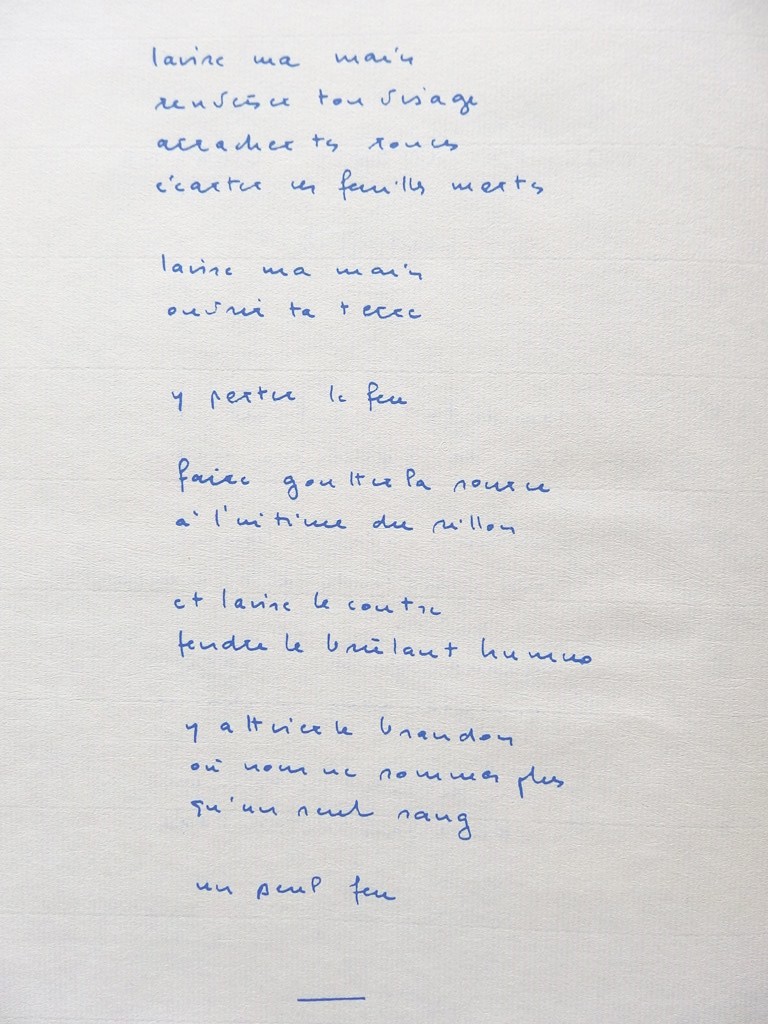 laisse ma main
renverser ton visage
arracher tes ronces
écarter ces feuilles mortes
laisse ma main
ouvrir ta terre
y porter le feu
faire goutter la source
à l'intime du sillon
et laisse le coutre
fendre le brûlant humus
y attiser le brandon
où nous ne sommes plus
qu'un seul sang
un seul feu